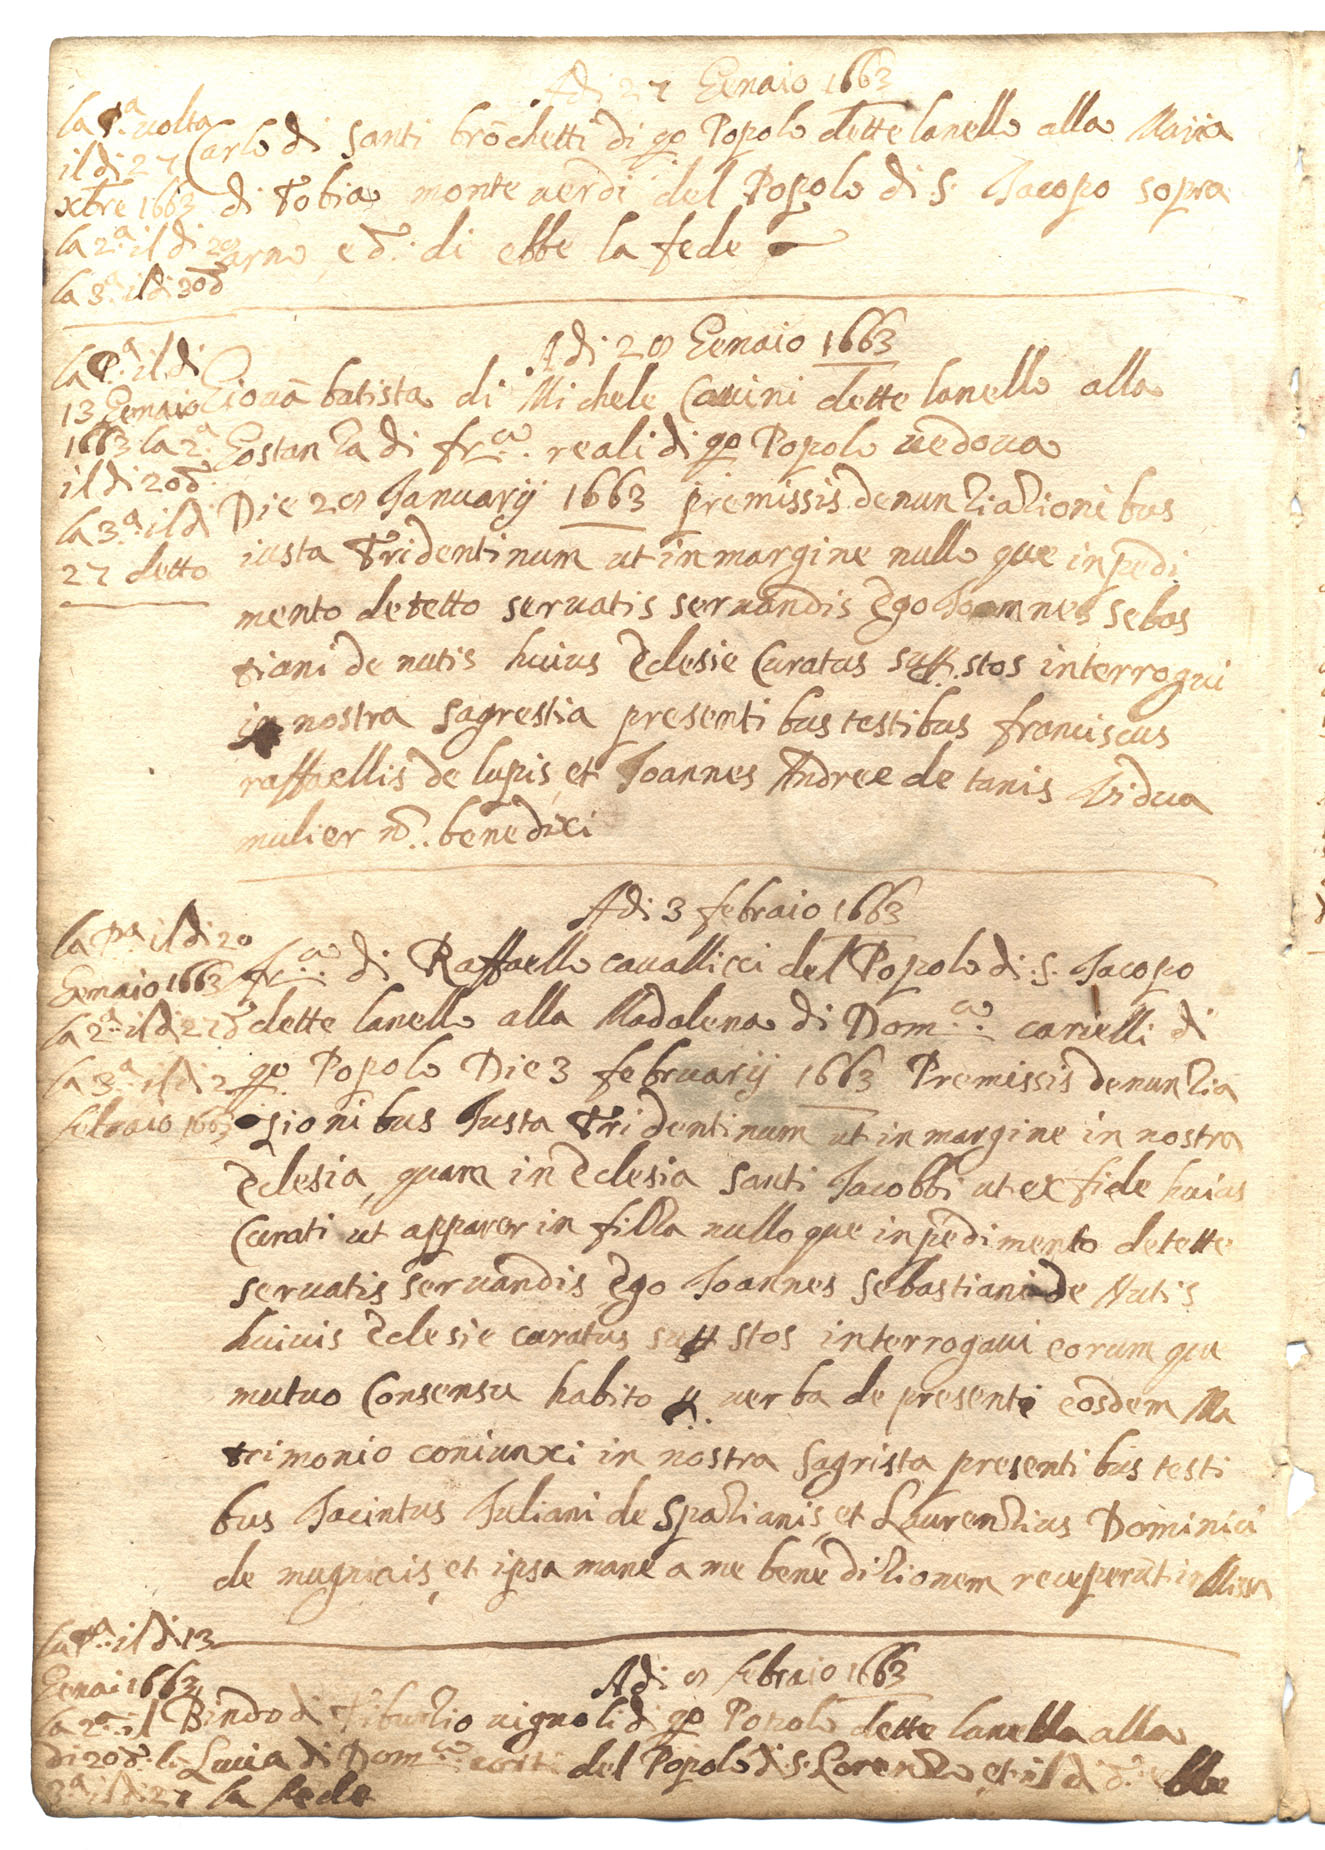 Adi 27 Genaio 1663
la p.a uolta
il di 27
xbre 1663
la 2.a il di 28
la 3.a il di 30 d.
Carlo di Santi brōchetti di qo Popolo dette lanello alla Maria
di Tobia monte uerdi del Popolo di S. Iacopo sopra
arno, e d.o di ebbe la fede
Adi 28 Genaio 1663
la p.a il di
13 Gennaio
1663 la 2.a
il di 20 d.
la 3.a il di
27 detto
Giouā batista di Michele Cauini dette lanello alla
Gostanza di fr.co reali di qo Popolo uedoua
Die 28 Januarij 1663 premissis denunziazionibus
iusta Tridentinum ut in margine nullo que inpedi
mento detetto seruatis seruandis Ego Joannes Sebas
tiani de nutis huius Eclesie Curatus suff.stos interrogui
in nostra Sagrestia presentibus testibus franciscus
raffaellis de lupis, et Joannes Andree de tanis Vidua
mulier nō. benedixi
Adi 3 febraio 1663
la p.a il di 20
Gennaio 1663
la 2.a il di 27 d.
la 3.a il di 2
febraio 1663
fr.co di Raffaello cauallicci del Popolo di S. Iacopo
dette lanello alla Madalena di Dom.co carielli di
qo Popolo Die 3 februarij 1663 Premissis denunzia
zionibus Justa Tridentinum ut in margine in nostra
Eclesia, quam in Eclesia Santi Jacobbi ut ex fide huius
Curati ut apparer in filza nullo que inpedimento detette
seruatis seruandis Ego Joannes Sebastiani de Nutis
huiuis Eclesie curatus suff stos interrogaui eorum que
mutuo Consensu habito p. uerba de presenti eosdem Ma
trimonio coniunxi in nostra Sagrista presentibus testi
bus Jacintus Juliani de Spazianis, et Laurenzius Dominici
de mugniais, et ipsa mane a me benedizionem receperūt in Missa
la p.a il di 13
Genai 1663
la 2.a il
di 20 d. la
3.a il di 27
Adi 8 febraio 1663
Bindo di Tiburzio uignoli di qo Popolo dette lanello alla
Lucia di Dom.co corti del Popolo di S. Lorenzo, et il di d.o ebbe
la fede